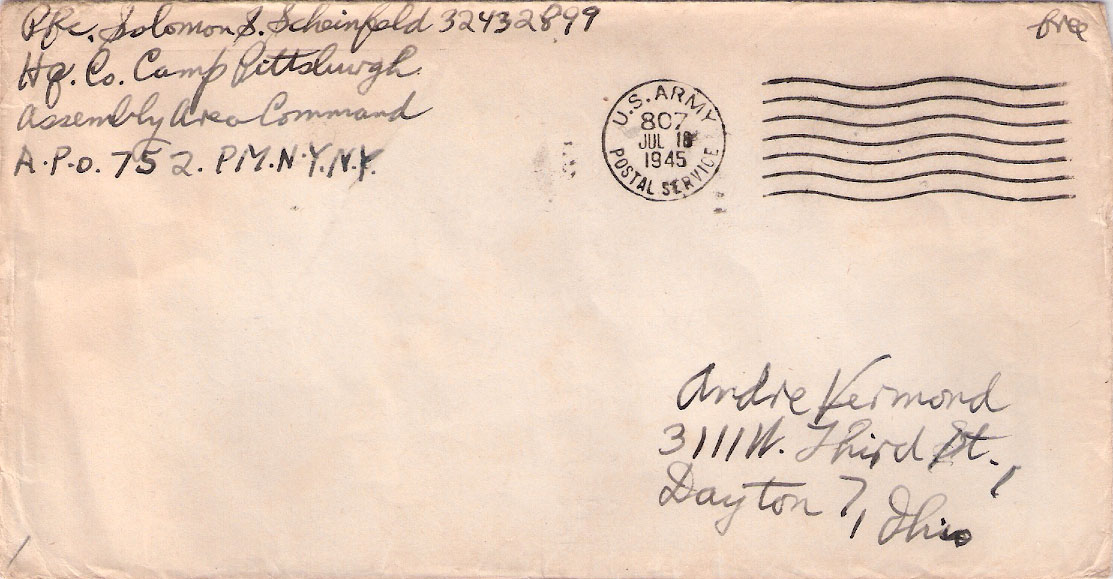 Pfc. Solomon S. Scheinfeld 32432899
Hq. Co. Camp Pittsburgh
Assembly Area Command
A.P.O. 752. P.M.N.Y.N.Y.
free
U.S. ARMY
807
JUL 18
1945
POSTAL SERVICE
Andre Vermond
3111 W. Third St.,
Dayton 7, Ohio